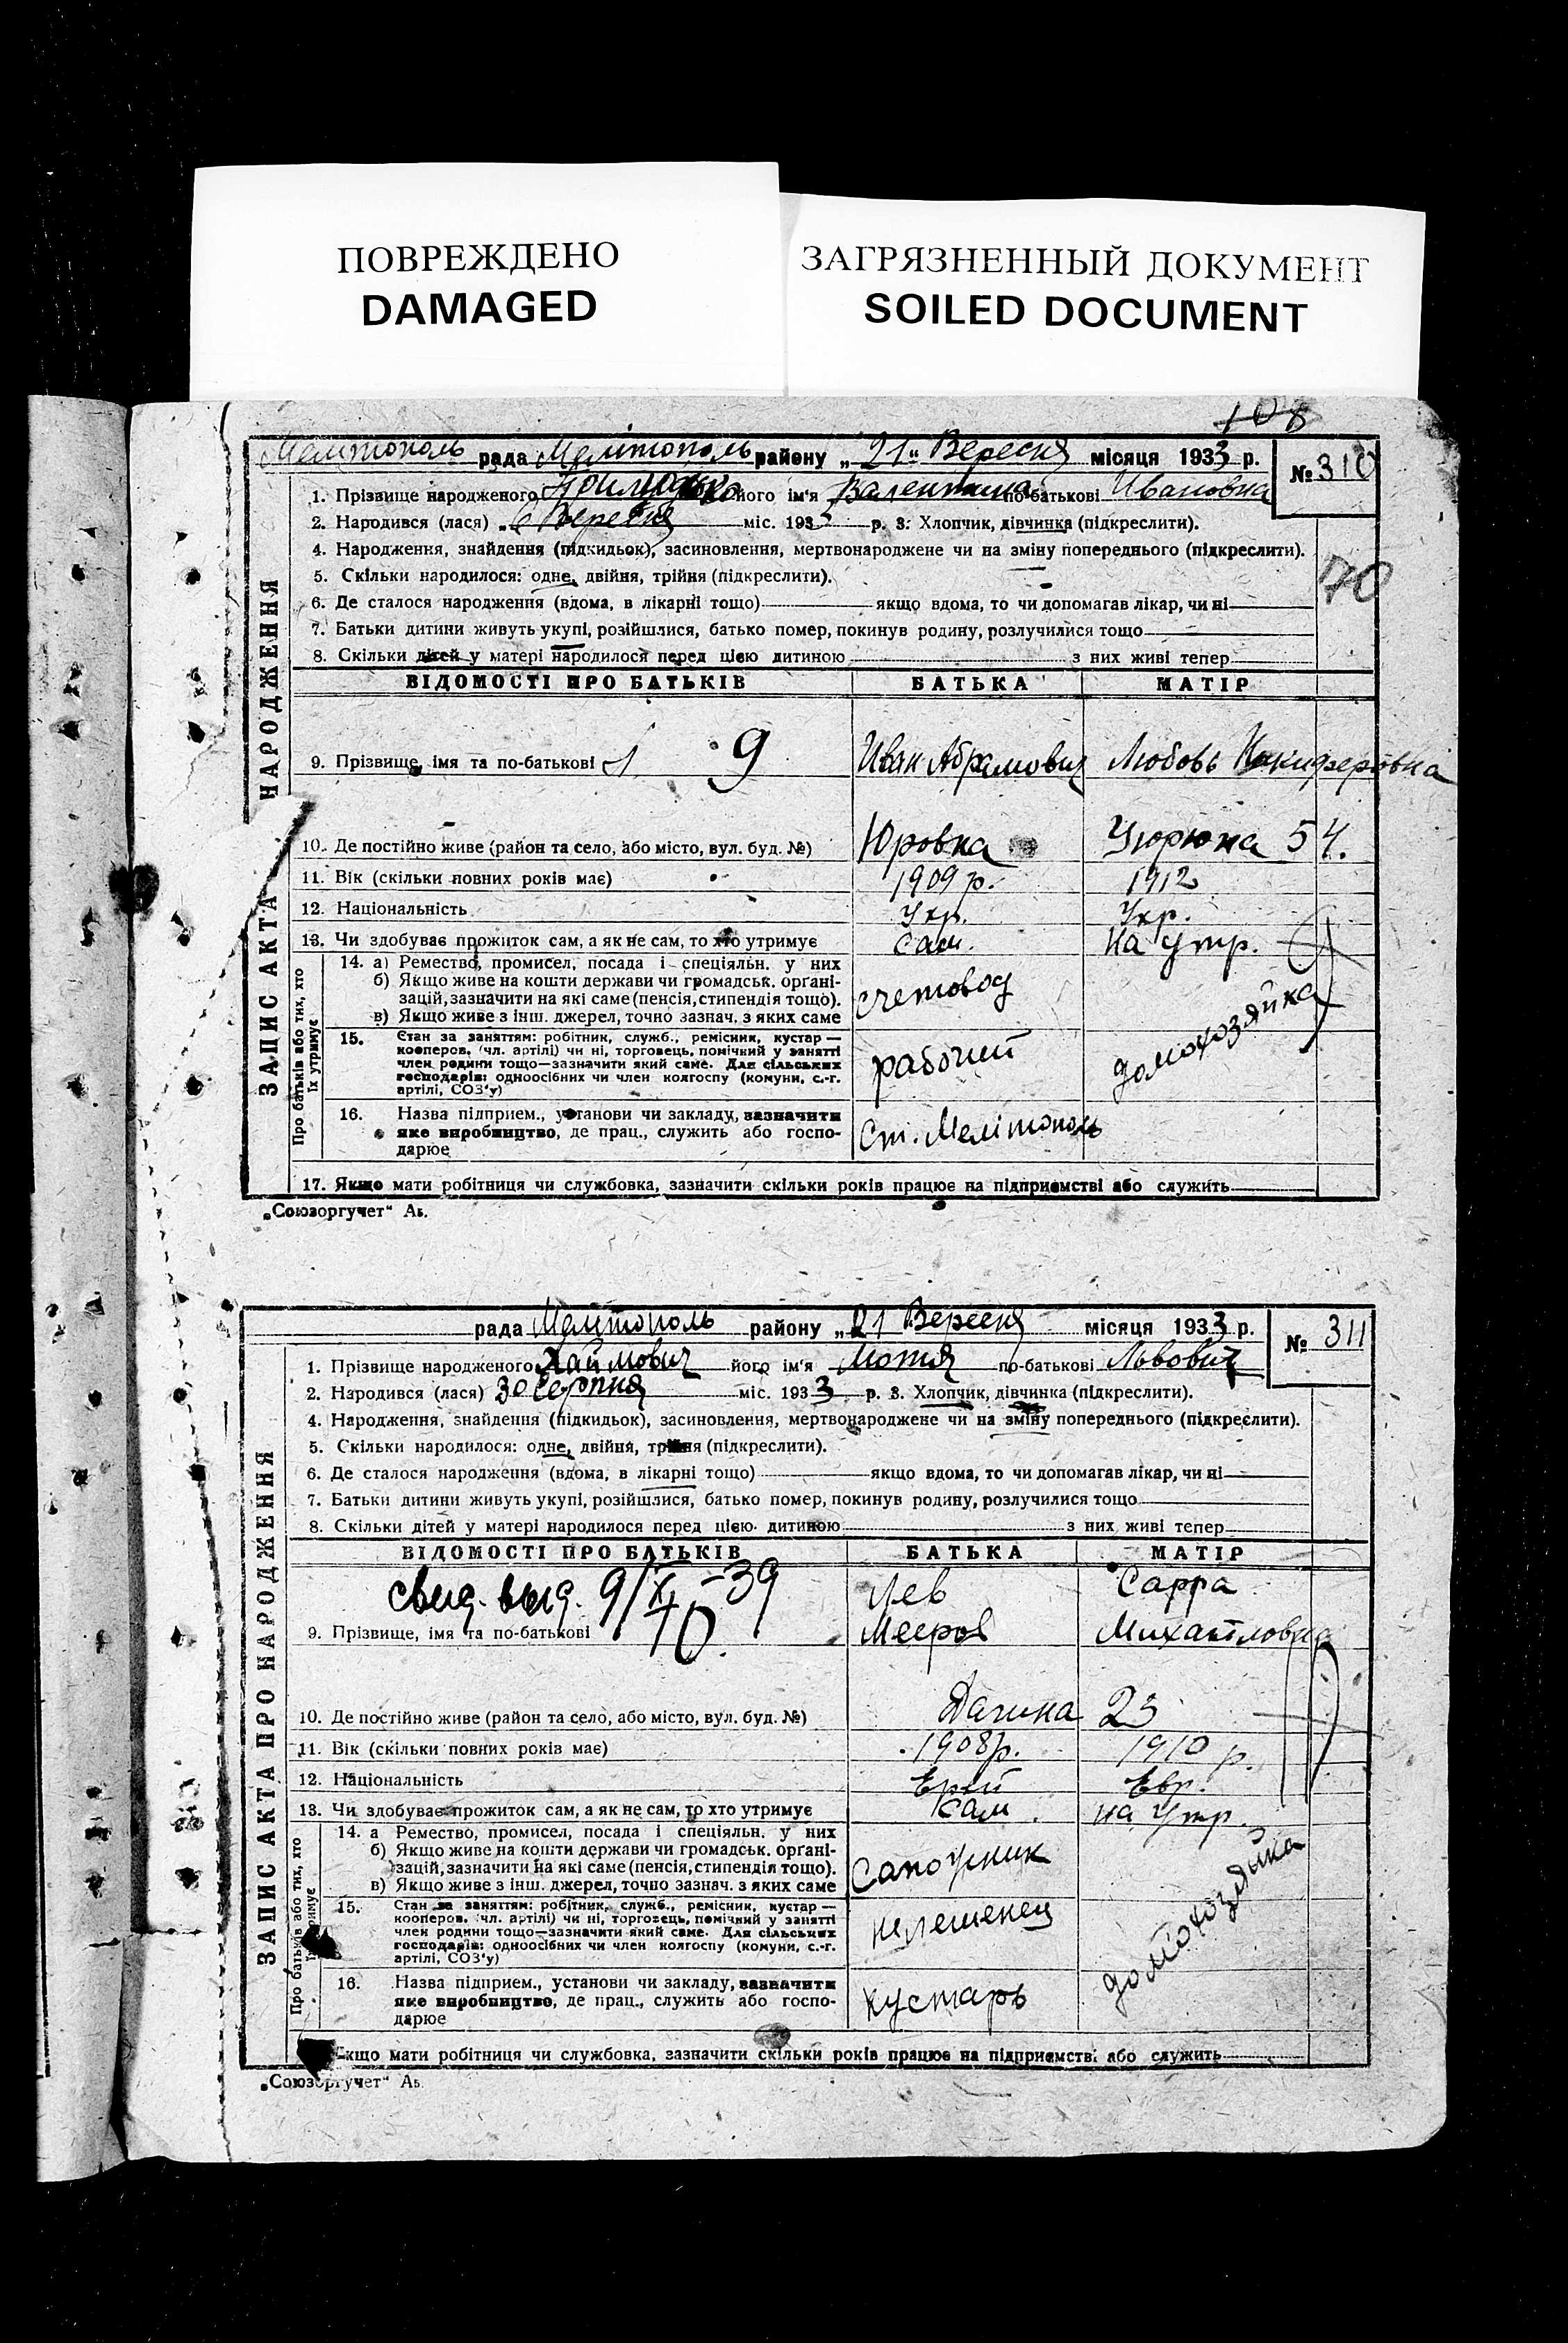 ПОВРЕЖДЕНО
DAMAGED
ЗАГРЯЗНЕННЫЙ ДОКУМЕНТ
SOILED DOCUMENT
108
Мелітополь рада Мелітополь району „21" Вересня місяця 1933 р.
№ 310
1. Прізвище народженого його ім'я Валентина по-батькові Ивановна
2. Народився (лася) „6 Вересня міс. 1933 р. 3. Хлопчик, дівчинка (підкреслити).
4. Народження, знайдення (підкидьок), засиновлення, мертвонароджене чи на зміну попереднього (підкреслити).
70
5. Скільки народилося: одне, двійня, трійня (підкреслити).
6. Де сталося народження (вдома, в лікарні тощо) якщо вдома, то чи допомагав лікар, чи ні
7. Батьки дитини живуть укупі, розійшлися, батько помер, покинув родину, розлучилися тощо
8. Скільки дітей у матері народилося перед цією дитиною з них живі тепер
ЗАПИС АКТА НАРОДЖЕННЯ
ВІДОМОСТІ ПРО БАТЬКІВ БАТЬКА МАТІР
9. Прізвище, імя та по-батькові 9 Иван Абрамович Любовь Никиферовна
10. Де постійно живе (район та село, або місто, вул. буд. №) Юровка 54.
11. Вік (скільки повних років має) 1909 р. 1912
12. Національність Укр. Укр.
13. Чи здобуває прожиток сам, а як не сам, то хто утримує сам. на утр.
Про батьків або тих, хто їх утримує
14. а) Ремество, промисел, посада і спеціяльн. у них
б) Якщо живе на кошти держави чи громадськ. органі-
зацій, зазначити на які саме (пенсія, стипендія тощо).
в) Якщо живе з інш. джерел, точно зазнач. з яких саме
счетовод домохозяйка
15. Стан за заняттям: робітник, служб., ремісник, кустар —
кооперов. (чл. артілі) чи ні, торговець, помічний у занятті
член родини тощо—зазначити який саме. Для сільських
господарів: одноосібних чи член колгоспу (комуни, с.-г.
артілі, СОЗ'у)
рабочий
16. Назва підприєм., установи чи закладу, зазначити
яке виробництво, де прац., служить або госпо-
дарює
Ст. Мелітополь
17. Якщо мати робітниця чи службовка, зазначити скільки років працює на підприємстві або служить
„Союзоргучет"
рада Мелітополь району „21 Вересня місяця 1933 р.
№ 311
1. Прізвище народженого Хаймович його ім'я Мотя по-батькові Львович
2. Народився (лася) 30 Серпня міс. 1933 р. 3. Хлопчик, дівчинка (підкреслити).
4. Народження, знайдення (підкидьок), засиновлення, мертвонароджене чи на зміну попереднього (підкреслити).
5. Скільки народилося: одне, двійня, трійня (підкреслити).
6. Де сталося народження (вдома, в лікарні тощо) якщо вдома, то чи допомагав лікар, чи ні
7. Батьки дитини живуть укупі, розійшлися, батько помер, покинув родину, розлучилися тощо
8. Скільки дітей у матері народилося перед цією дитиною з них живі тепер
ЗАПИС АКТА ПРО НАРОДЖЕННЯ
ВІДОМОСТІ ПРО БАТЬКІВ БАТЬКА МАТІР
свид. выд. 9/XI-39 Лев Сарра
9. Прізвище, імя та по-батькові Мееров Михайловна
10. Де постійно живе (район та село, або місто, вул. буд. №) 23
11. Вік (скільки повних років має) 1908р. 1910 р.
12. Національність Евр.
13. Чи здобуває прожиток сам, а як не сам, то хто утримує сам на утр.
Про батьків або тих, хто
14. а Ремество, промисел, посада і спеціяльн. у них
б) Якщо живе на кошти держави чи громадськ. органі-
зацій, зазначити на які саме (пенсія, стипендія тощо).
в) Якщо живе з інш. джерел, точно зазнач. з яких саме
Сапожник домохозяйка
15. Стан за заняттям: робітник, служб., ремісник, кустар —
кооперов. чл. артілі) чи ні, торговець, помічний у занятті
член родини тощо—зазначити який саме. Для сільських
господарів: одноосібних чи член колгоспу (комуни, с.-г.
артілі, СОЗ'у)
16. Назва підприєм., установи чи закладу, зазначити
яке виробництво, де прац., служить або госпо-
дарює
кустарь
Якщо мати робітниця чи службовка, зазначити скільки років працює на підприємстві або служить
„Союзоргучет"